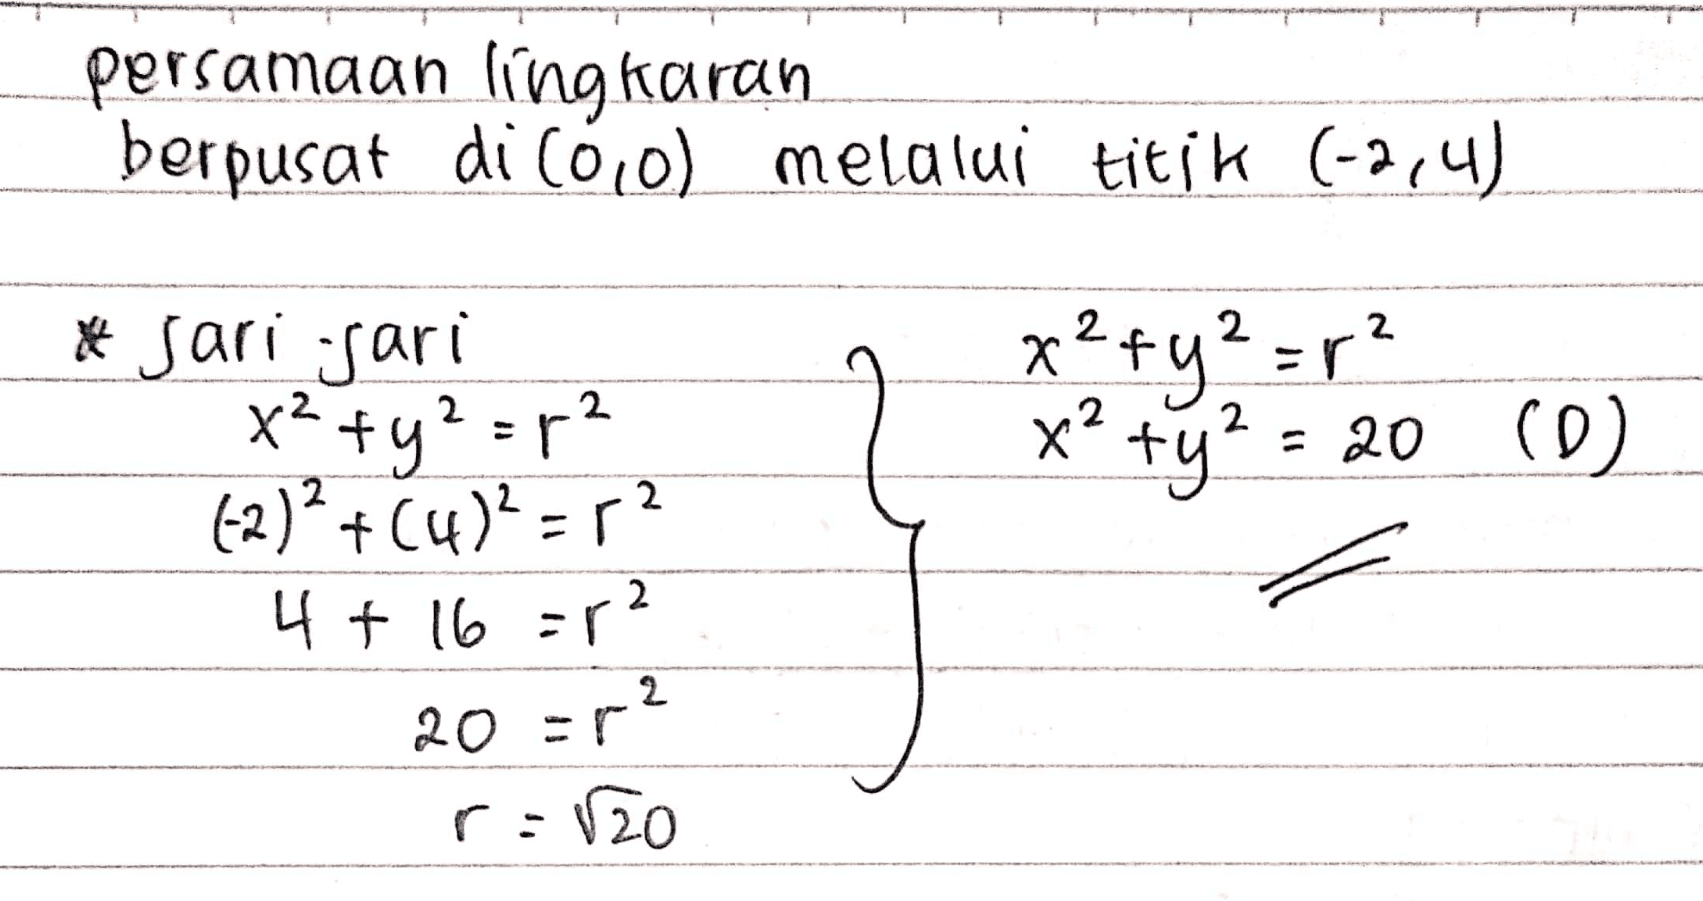 persamaan lingkaran
berpusat di (0,0) melalui titik (-2,4)
* Jari-jari
x² + y² = r²
(-2)² + (4)² = r²
4 + 16 = r²
20 = r²
r = √20
x² + y² = r²
x² + y² = 20 (D)